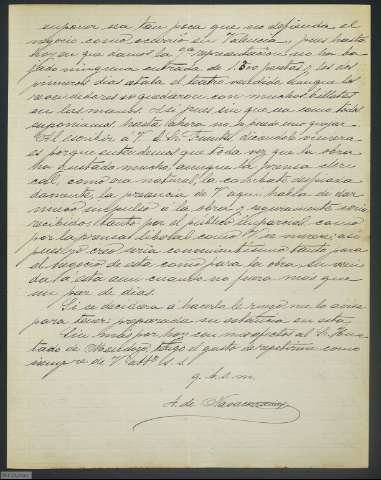 suponer sea tan poca que no defienda el
negocio como ocurrió en Valencia, pues hasta
hoy en que damos la 9ª representacion no ha ba
jado ninguna entrada de 1.500 pesetas, y los dos
primeros dias estaba el teatro vendido aunque los
revendedores se quedaron con muchos billetes
en las manos. Asi pues sin que
suponiamos, hasta ahora no se puede uno quejar.
El escribir á V. el Sr. diciendole viniera
es porque entendemos que toda vez que la obra
ha gustado mucho, aunque la prensa cleri-
cal, como era natural, la combate despiada
damente, la presencia de V. aqui habia de dar
mucho impulso á la obra y seguramente seria
recibido, tanto por el público imparcial como
por la prensa liberal como V. se merece; asi
pues yo creo seria convenientisimo tanto para
el negocio de esta como para la obra su veni
da á esta aun cuando no fuera mas que
un par de dias.
Si se decidiera á hacerlo le ruego me lo avise
para tener preparada su estancia en esta.
Sin mas por hoy con mis afectos al Sr. Hur
tado de Mendoza, tengo el gusto de repetirme como
siempre de V. atto. s. s.
q. b. s. m.
A. de